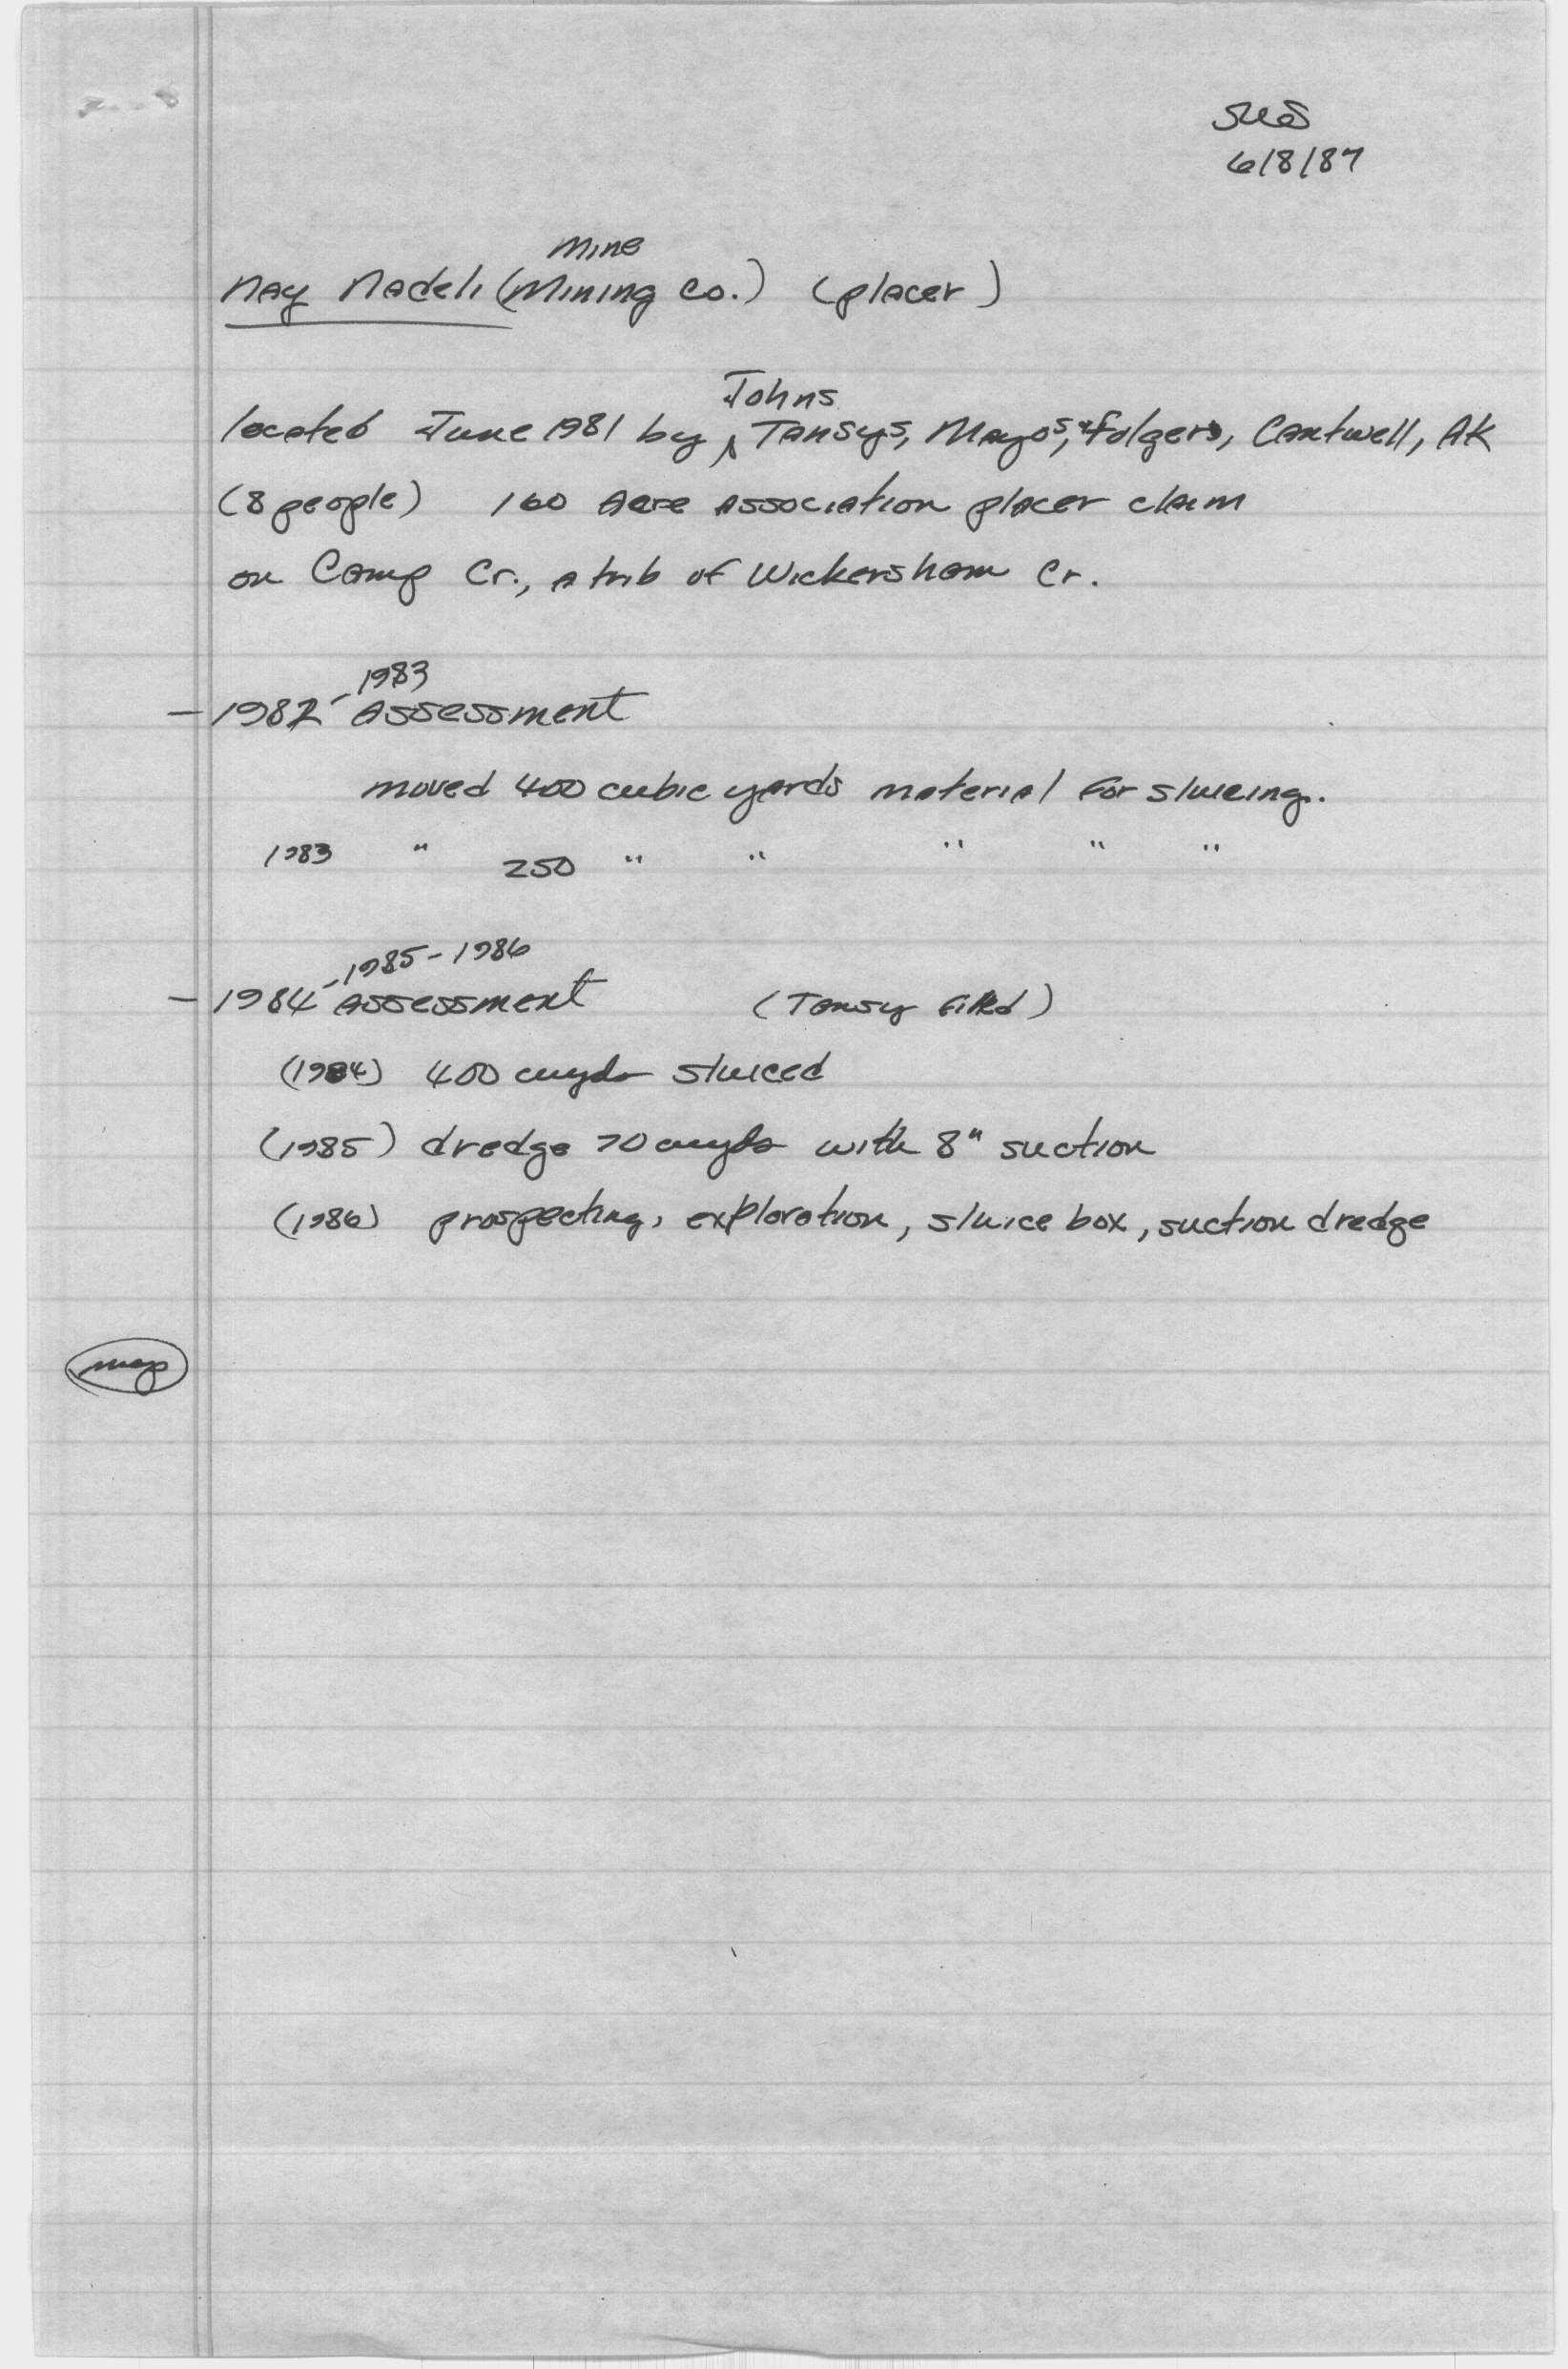 6/8/87
Mine
Nay Nadeli (Mining Co.) (placer)
Johns
located June 1981 by ^ Tansys, Mayos, & Folgers, Cantwell, AK
(8 people) 160 acre association placer claim
on Camp Cr., a trib of Wickersham Cr.
-1983
- 1982 Assessment
moved 400 cubic yards material for sluicing.
1983 " 250 " " " " "
-1985-1986
- 1984 Assessment (Tansy filed)
(1984) 400 cuyds sluiced
(1985) dredge 70 cuyds with 8" suction
(1986) prospecting, exploration, sluice box, suction dredge
map